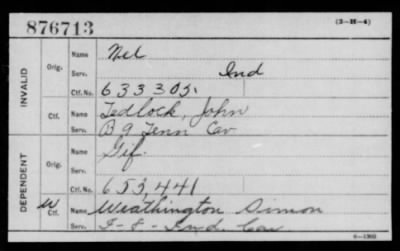 876713 (3-H-4)
INVALID
Orig. Name Nel
Serv. Ind
Ctf. No. 633305.
Ctf. Name Tedlock, John
Serv. B 9 Tenn Cav
DEPENDENT
Orig. Name Gif.
Serv.
653,441
W Ctf. Name Weathington Simon
Serv. I-8-Ind. Cav
6-1360